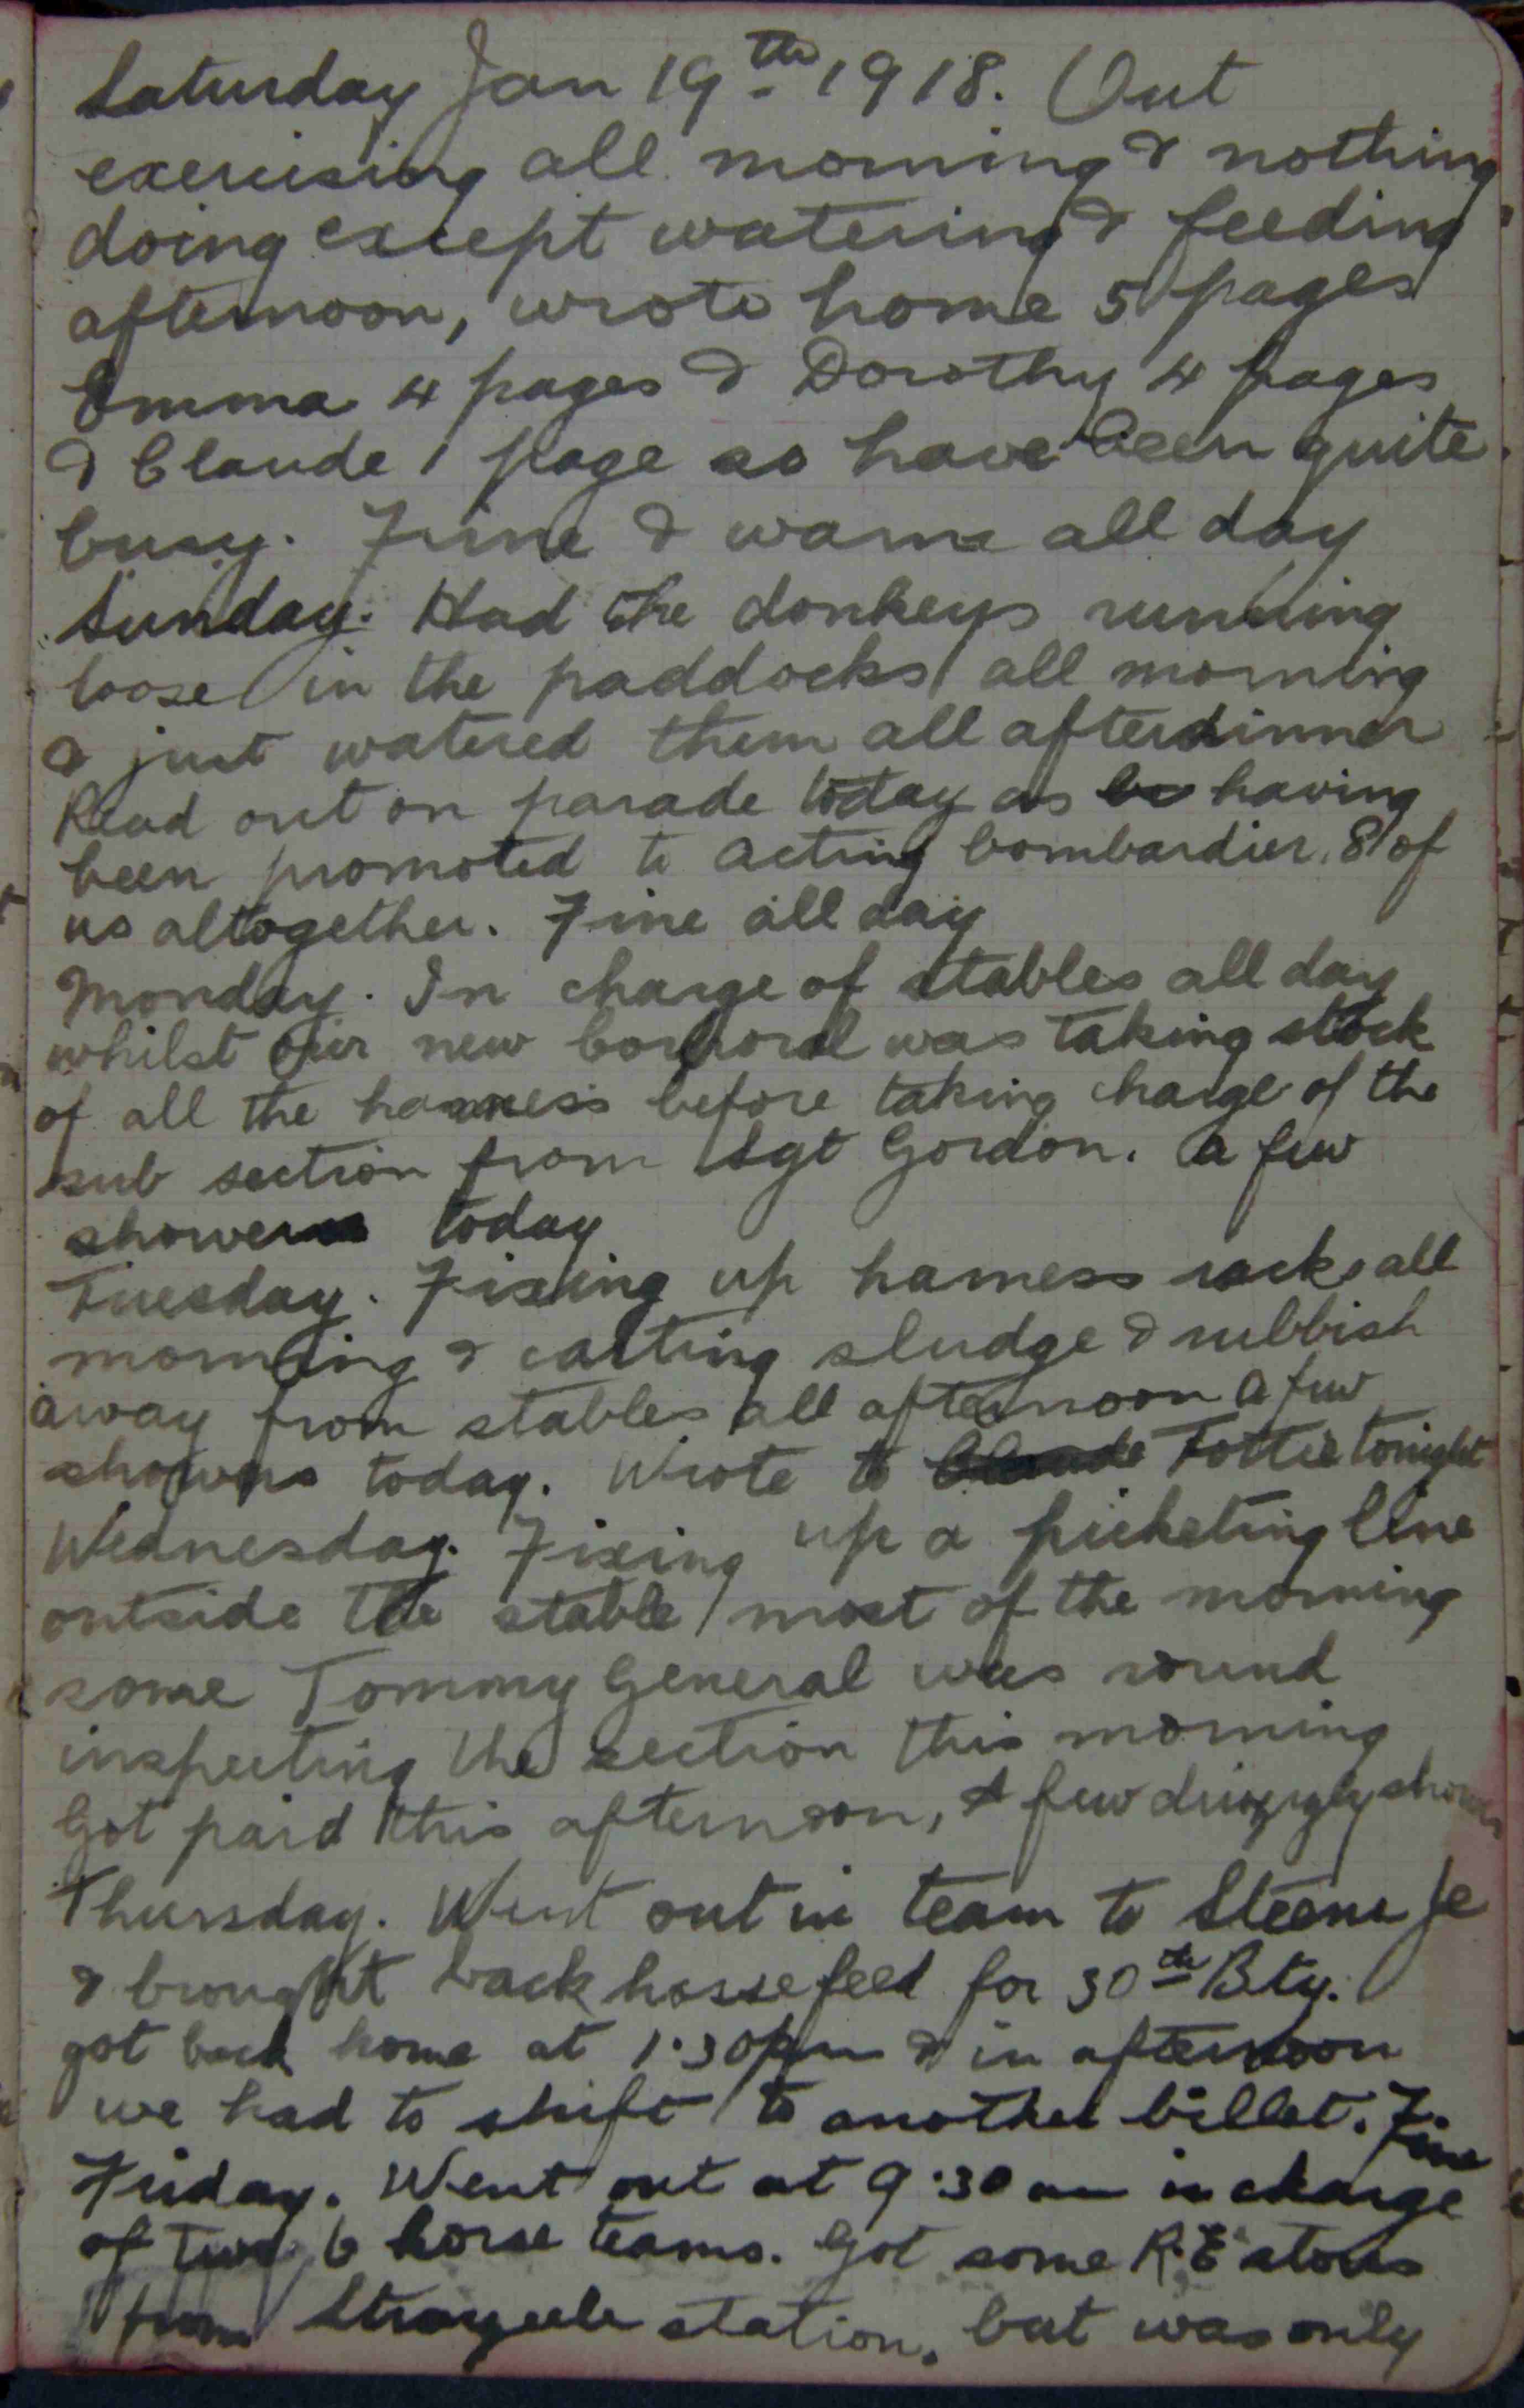 Saturday Jan 19th 1918. Out
exercising all morning & nothing
doing except watering & feeding
afternoon, wrote home 5 pages
Emma 4 pages & Dorothy 4 pages
& Claude 1 page so have been quite
busy. Fine & warm all day
Sunday. Had the donkeys running
loose in the paddocks all morning
& just watered them all after dinner
Read out on parade today as be having
been promoted to acting bombardier. 8 of
us altogether. Fine all day
Monday. In charge of stables all day
whilst our new Corporal was taking stock
of all the harness before taking charge of the
sub section from Sgt Gordon. A few
showers today
Tuesday. Fixing up harness racks all
morning & carting sludge & rubbish
away from stables all afternoon a few
showers today. Wrote to Claude Tottie tonight
Wednesday. Fixing up a picketing line
outside the stable most of the morning
some Tommy General was round
inspecting the section this morning
Got paid this afternoon, A few drizzly showers
Thursday. Went out in team to Steenwerck
& brought back horse feed for 30th Bty.
got back home at 1.30pm & in afternoon
we had to shift to another billet. Fine
Friday. Went out at 9.30 am in charge
of two 6 horse teams. Got some R.E stores
from Strazeele station. but was only